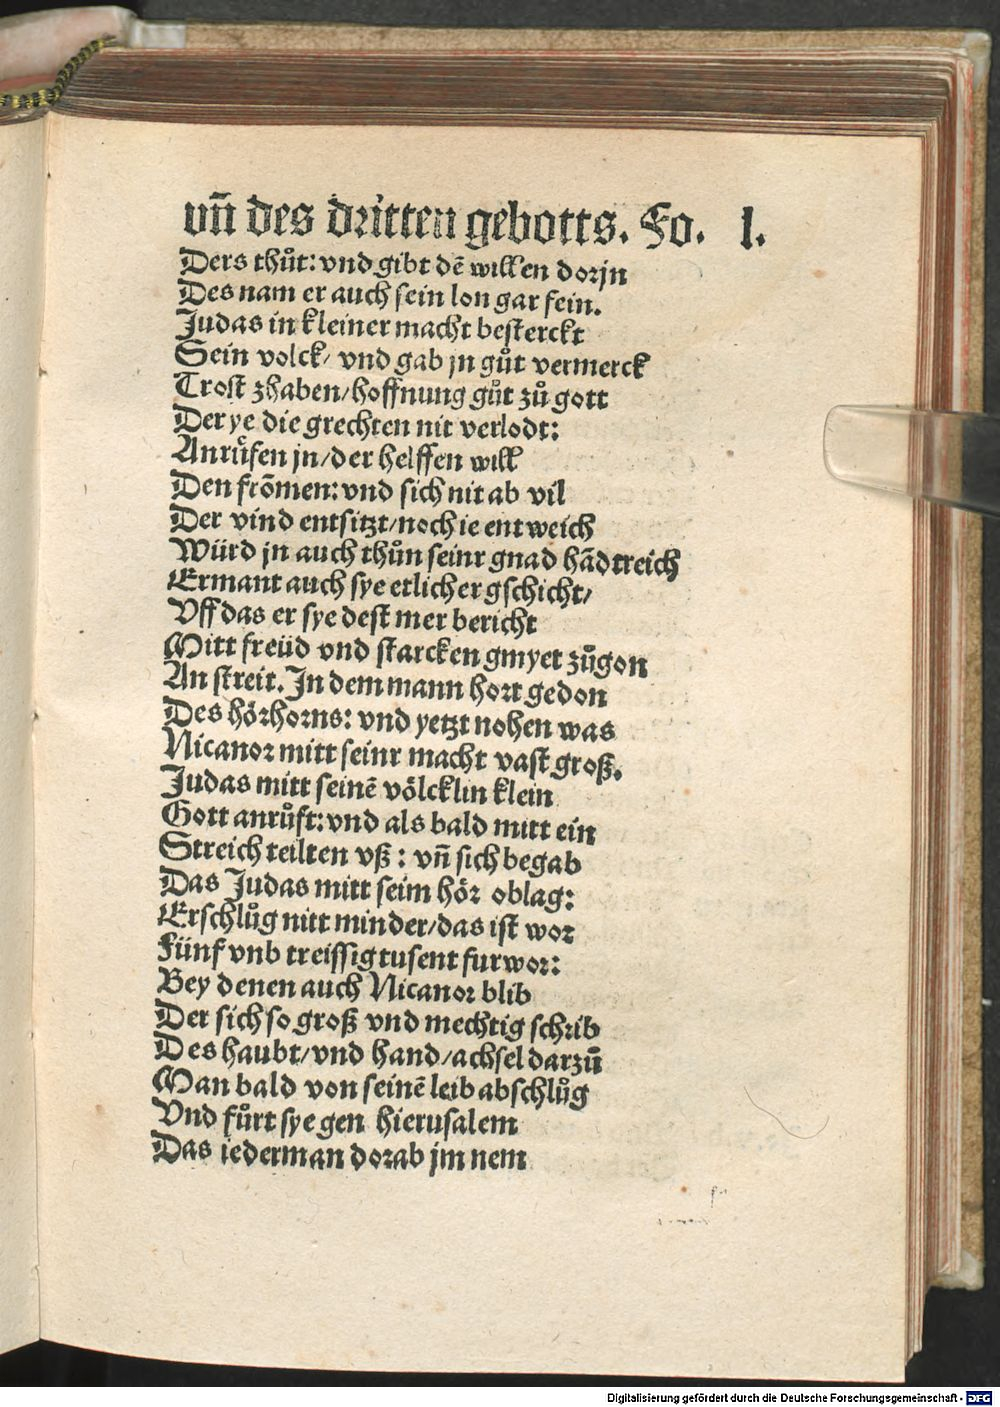 vn̄ des dritten gebotts. Fo. l.
Ders thůt: vnd gibt dē willen dorjn
Des nam er auch sein lon gar fein.
Judas in kleiner macht besterckt
Sein volck/ vnd gab jn gůt vermerck
Trost zhaben/hoffnung gůt zů gott
Der ye die grechten nit verlodt:
Anrůfen jn/der helffen will
Den frōmen: vnd sich nit ab vil
Der vind entsitzt/noch ie entweich
Würd jn auch thůn seinr gnad hādtreich
Ermant auch sye etlicher gschicht/
Vff das er sye dest mer bericht
Mitt freüd vnd starcken gmyet zůgon
An streit. In dem mann hort gedon
Des hörhorns: vnd yetzt nohen was
Nicanor mitt seinr macht vast groß.
Judas mitt seinē völcklin klein
Gott anrůft: vnd als bald mitt ein
Streich teilten vß: vn̄ sich begab
Das Judas mitt seim hör oblag:
Erschlůg nitt minder/das ist wor
Fünf vnb treissig tusent furwor:
Bey denen auch Nicanor blib
Der sich so groß vnd mechtig schrib
Des haubt/vnd hand/achsel darzů
Man bald von seinē leib abschlůg
Vnd fůrt sye gen hierusalem
Das iederman dorab jm nem
Digitalisierung gefördert durch die Deutsche Forschungsgemeinschaft - DFG